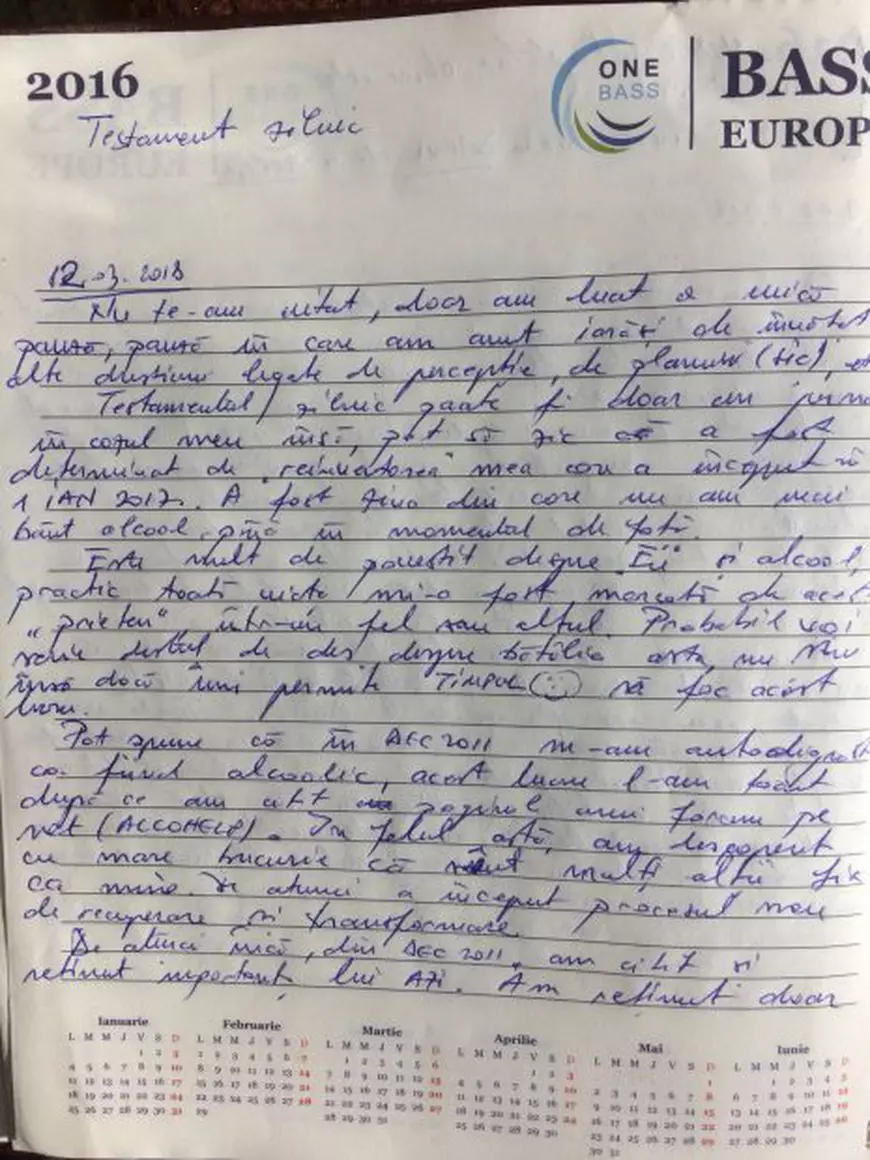 2016
ONE
BASS
BASS
EUROP
Testament zilnic
12.03.2018
Nu te-am uitat, doar am luat o mică
pauză, pauză în care am avut iarăși de învățat
alte chestiuni legate de percepție, de planuri (sic),
Testamentul zilnic poate fi doar un
în cazul meu însă, pot să zic că a fost
determinat de "reinventarea" mea care a început în
1 IAN 2017. A fost ziua din care nu am mai
băut alcool, pînă în momentul de față.
Este mult de povestit despre "Eu" și alcool,
practic toată viața mi-a fost marcată de acest
"prieten" într-un fel sau altul. Probabil voi
scrie destul de des despre bătălia asta, nu știu
însă dacă îmi permite TIMPUL să fac acest
lucru.
Pot spune că în DEC 2011 m-am autodiagnost
ca fiind alcoolic, acest lucru l-am făcut
după ce am citit pagina unui forum pe
net (ALCOHELP). În felul ăsta, am descoperit
cu mare bucurie că sunt mulți alții fix
ca mine. De atunci a început procesul meu
de recuperare și transformare.
De atunci încă, din DEC 2011, am citit și
reținut importanța lui AZI. Am reținut doar
Ianuarie
L M M J V S D
1 2 3
4 5 6 7 8 9 10
11 12 13 14 15 16 17
18 19 20 21 22 23 24
25 26 27 28 29 30 31
Februarie
L M M J V S D
1 2 3 4 5 6 7
8 9 10 11 12 13 14
15 16 17 18 19 20 21
22 23 24 25 26 27 28
29
Martie
L M M J V S D
1 2 3 4 5 6
7 8 9 10 11 12 13
14 15 16 17 18 19 20
21 22 23 24 25 26 27
28 29 30 31
Aprilie
L M M J V S D
1 2 3
4 5 6 7 8 9 10
11 12 13 14 15 16 17
18 19 20 21 22 23 24
25 26 27 28 29 30
Mai
L M M J V S D
1
2 3 4 5 6 7 8
9 10 11 12 13 14 15
16 17 18 19 20 21 22
23 24 25 26 27 28 29
30 31
Iunie
L M M J V S D
1 2 3 4 5
6 7 8 9 10 11 12
13 14 15 16 17 18 19
20 21 22 23 24 25 26
27 28 29 30